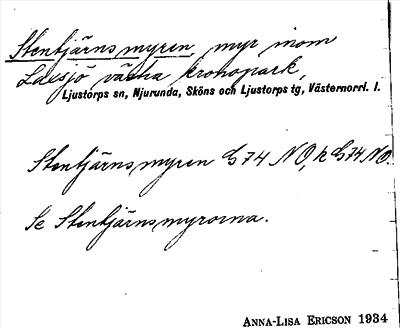 Stentjärnsmyren, myr inom
Laxsjö västra kronopark,
Ljustorps sn, Njurunda, Sköns och Ljustorps tg, Västernorrl. l.
Stentjärnsmyren G74 NO, k G74 NO.
Se Stentjärnsmyrorna.
ANNA-LISA ERICSON 1934